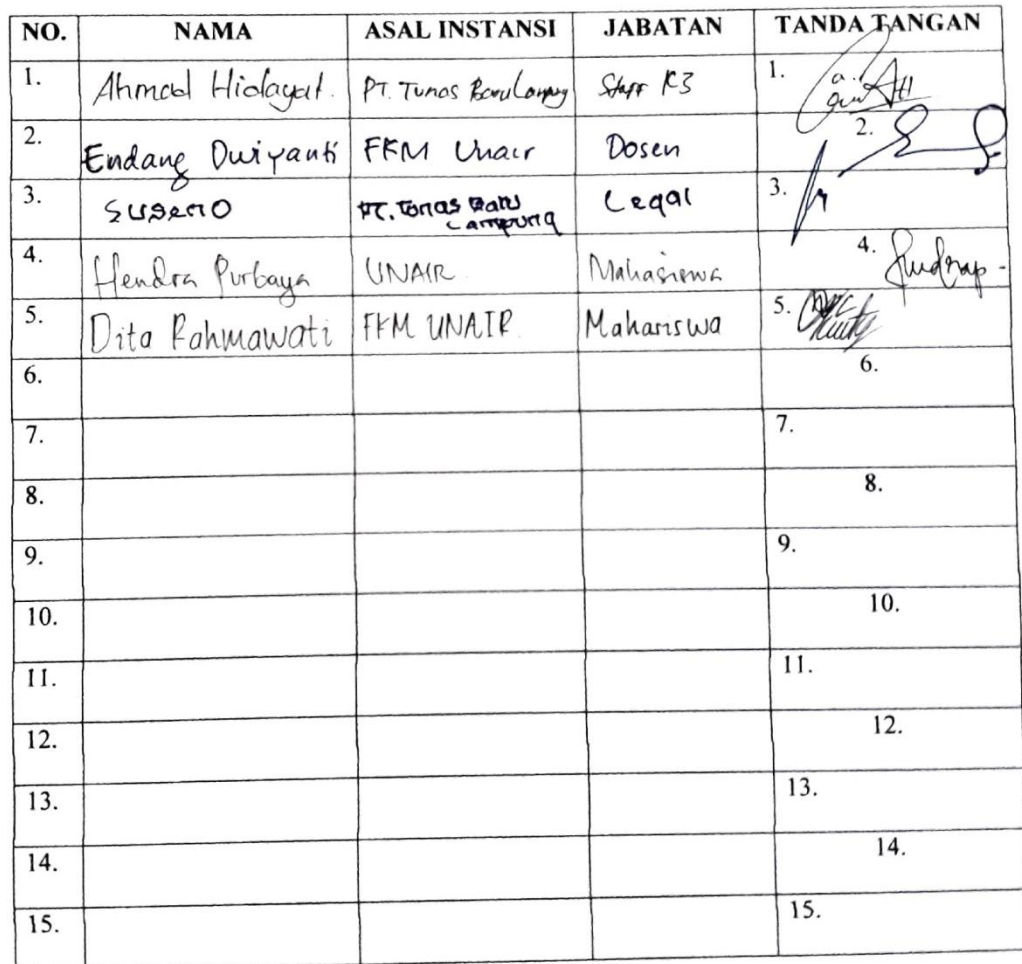 NO. NAMA ASAL INSTANSI JABATAN TANDA TANGAN
1. Ahmad Hidayat. PT. Tunas Baru Lampung Staff K3 1.
2. Endang Dwiyanti FKM Unair Dosen 2.
3. Suseno PT. Tunas Baru Lampung Legal 3.
4. Hendra Purbaya UNAIR Mahasiswa 4.
5. Dita Rahmawati FKM UNAIR Mahasiswa 5.
6. 6.
7. 7.
8. 8.
9. 9.
10. 10.
11. 11.
12. 12.
13. 13.
14. 14.
15. 15.